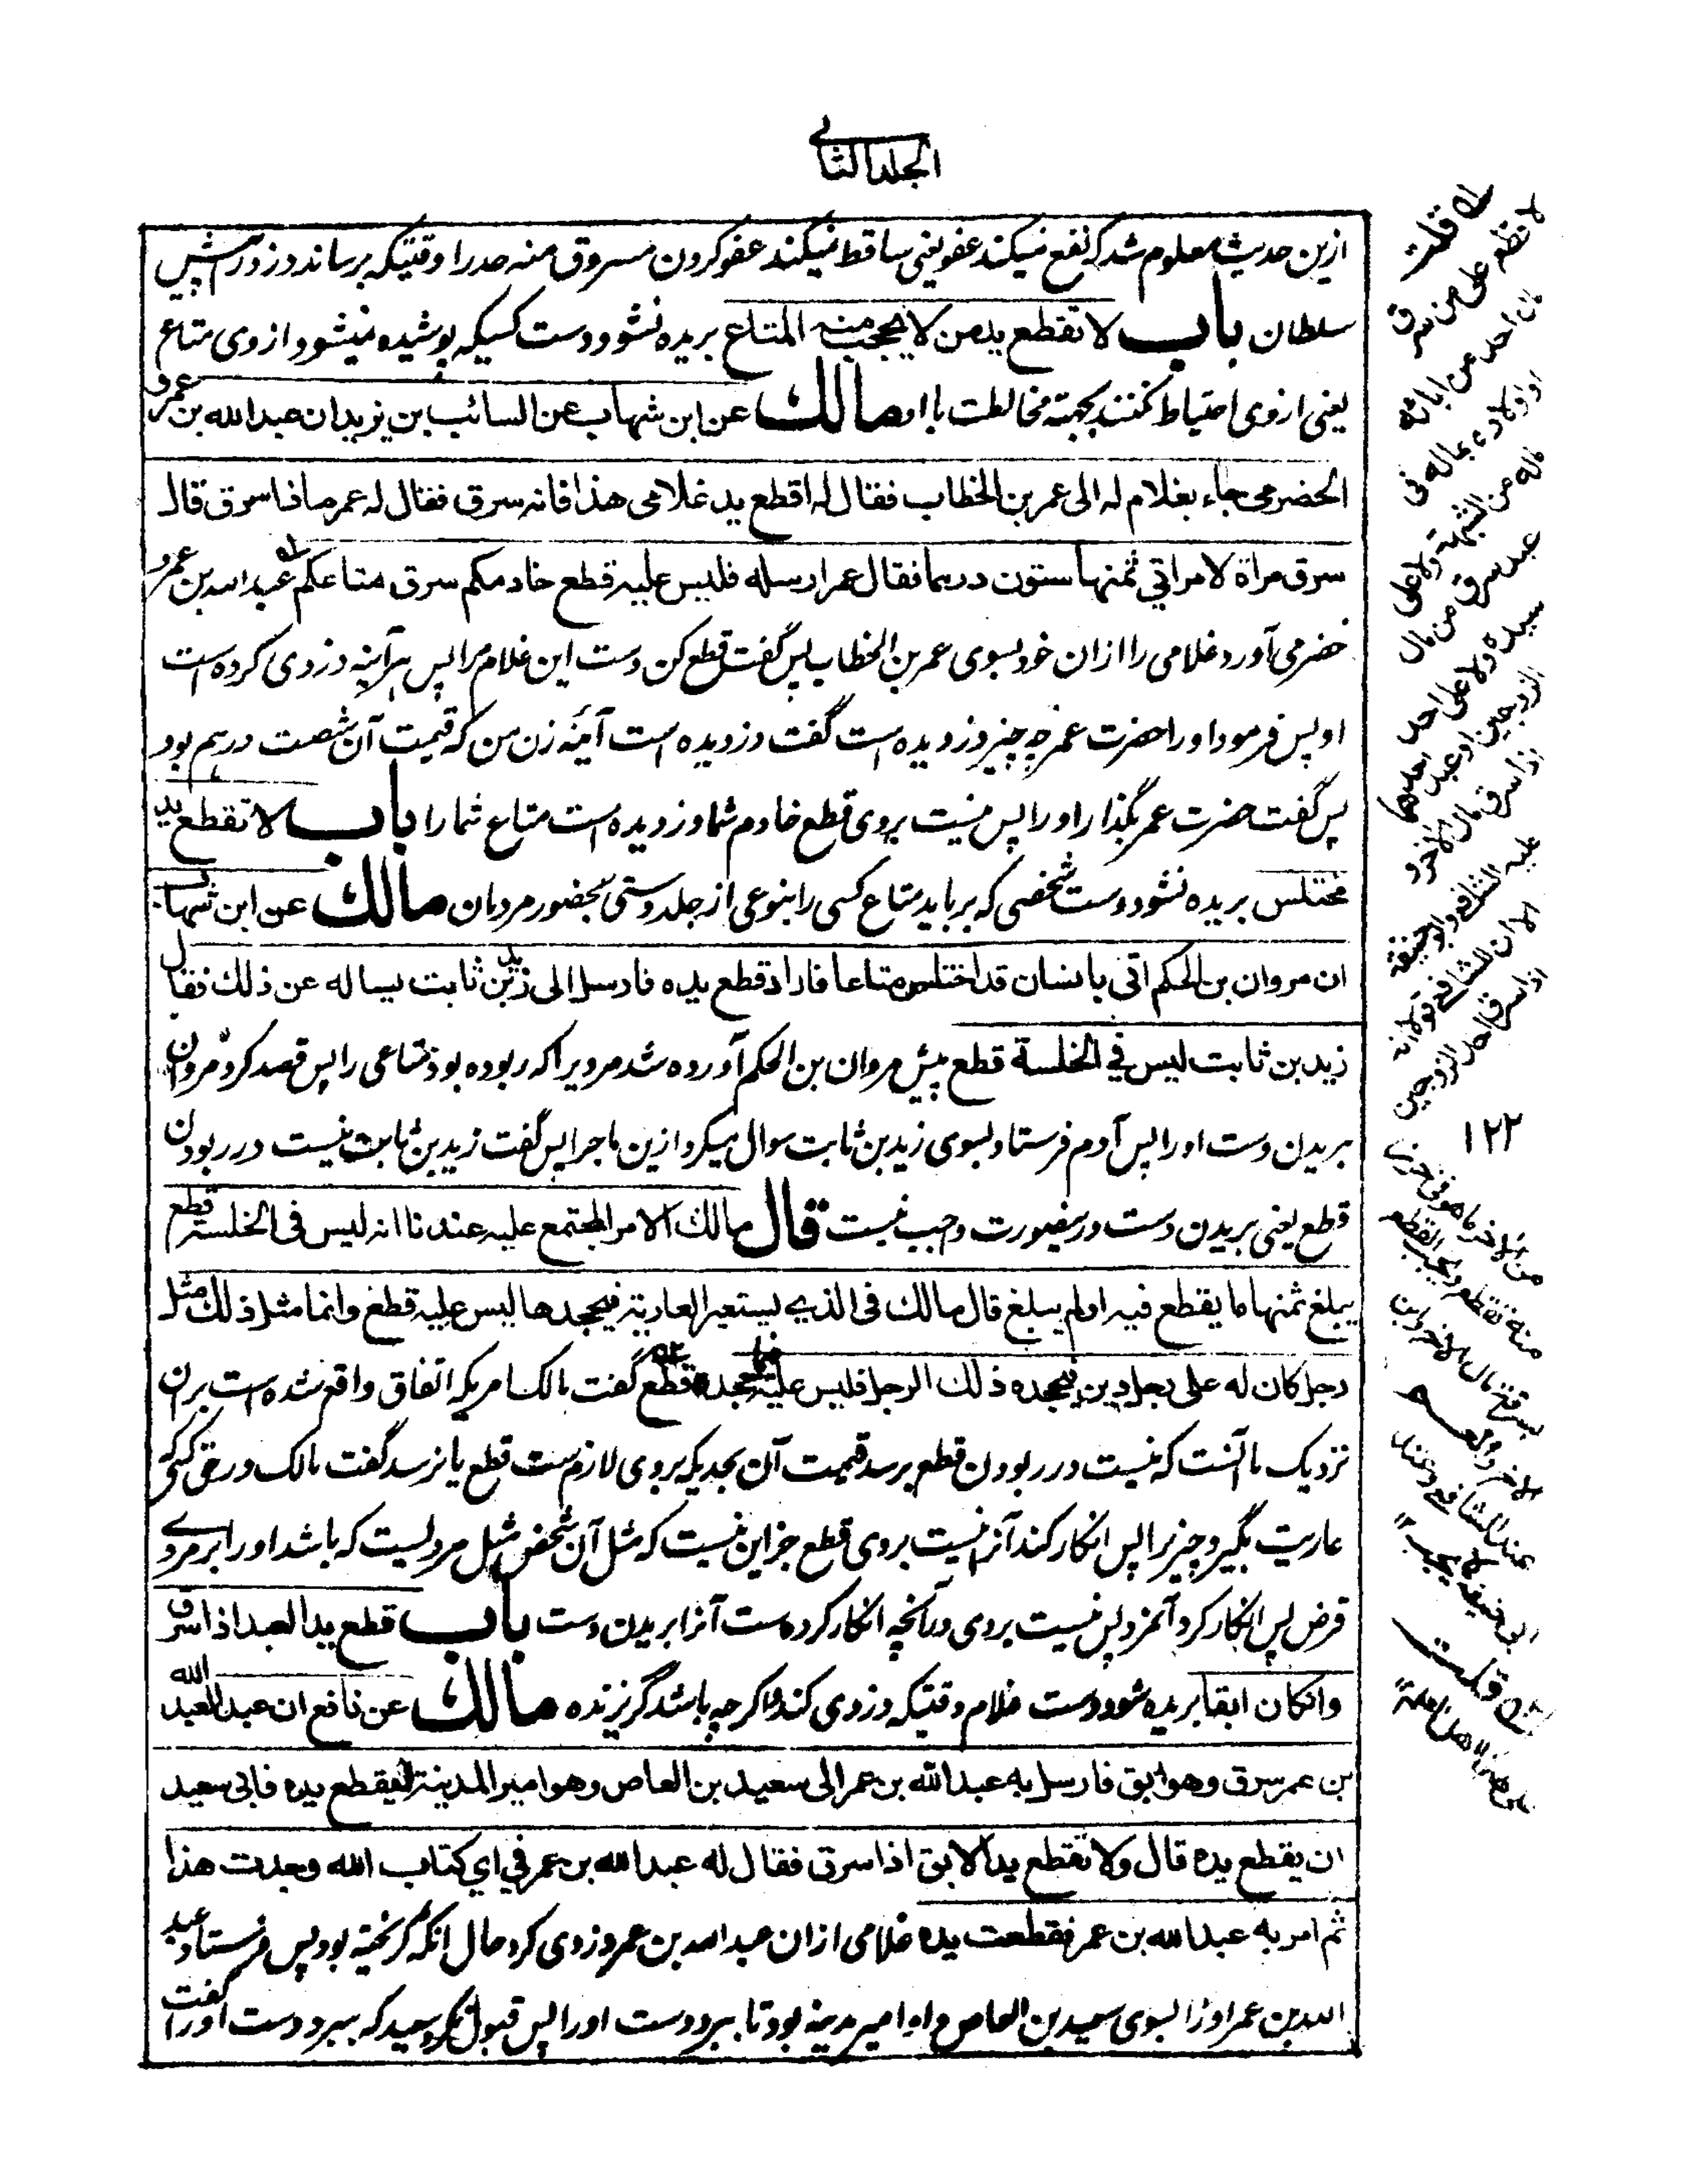 المجلد الثانی
ازین حدیث معلوم شد که نفع نمیکند عفو یعنی ساقط نمیکند عفو کردن مسروق منه حد را وقتیکه برساند دزد را پیش
سلطان باب لا تقطع ید من لا یحجب منه المتاع بریده نشود دست کسیکه پوشیده نمیشود از وی متاع
یعنی از وی احتیاط نکنند بجهته مخالطت با او مالك عن ابن شهاب عن السائب بن یزید ان عبدالله بن عمرو
الحضرمی جاء بغلام له الی عمر بن الخطاب فقال له اقطع ید غلامی هذا فانه سرق فقال له عمر ماذا سرق قال
سرق مراة لامراتي ثمنها ستون درهما فقال عمر ارسله فلیس علیه قطع خادمکم سرق متاعکم عبدالله بن عمرو
حضرمی آورد غلامی را ازان خود بسوی عمر بن الخطاب پس گفت قطع کن دست این غلام مرا پس هرآینه دزدی کرده است
او پس فرمود او را حضرت عمر چه چیز دزدیده است گفت دزدیده است آئینه زن من که قیمت آن شصت درهم بود
پس گفت حضرت عمر بگذار او را پس نیست بروی قطع خادم شما دزدیده است متاع شما را باب لا تقطع ید
مختلس بریده نشود دست شخصی که برباید متاع کسی را بنوعی از جلد دستی بحضور مردمان مالك عن ابن شهاب
ان مروان بن الحکم اتی بانسان قد اختلس متاعا فاراد قطع یده فارسل الی زید بن ثابت یساله عن ذلك فقال
زید بن ثابت لیس في الخلسة قطع پیش مروان بن الحکم آورده شد مردیرا که ربوده بود متاعی را پس قصد کرد مروان
بریدن دست او را پس آدم فرستاد بسوی زید بن ثابت سوال میکرد ازین ماجرا پس گفت زید بن ثابت نیست در ربودن
قطع یعنی بریدن دست درینصورت واجب نیست قال مالك الامر المجتمع علیه عندنا انه لیس فی الخلسة قطع
یبلغ ثمنها ما یقطع فیه او لم یبلغ قال مالك فی الذی یستعیر العاریة فیجحدها لیس علیه قطع وانما مثل ذلك مثل
رجل کان له علی رجل دین فیجحده ذلك الرجل فلیس علیه فیما جحده قطع گفت مالک امریکه اتفاق واقع شده است بران
نزدیک ما آنست که نیست در ربودن قطع برسد قیمت آن بحدیکه بروی لازم ست قطع یا نرسد گفت مالک در حق کسی که
عاریت بگیرد چیزیرا پس انکار کند آنرا نیست بروی قطع جز این نیست که مثل آن شخص مثل مردیست که باشد او را بر مردی
قرض پس انکار کرد آنمرد پس نیست بروی درآنچه انکار کرده ست آنرا بریدن دست باب قطع ید العبد اذا سرق
وان کان ابقا بریده شود دست غلام وقتیکه دزدی کند اگرچه باشد گریزنده مالك عن نافع ان عبدا لعبد الله
بن عمر سرق وهو ابق فارسل به عبدالله بن عمر الی سعید بن العاص وهو امیر المدینة لیقطع یده فابی سعید
ان یقطع یده قال ولا تقطع ید الابق اذا سرق فقال له عبدالله بن عمر في اي کتاب الله وجدت هذا
ثم امر به عبدالله بن عمر فقطعت یده غلامی ازان عبدالله بن عمر دزدی کرد حال آنکه گریخته بود پس فرستاد عبد
الله بن عمر او را بسوی سعید بن العاص و او امیر مدینه بود تا ببرد دست او را پس قبول نکرد سعید که ببرد دست او را گفت
له قلت
لا قطع علی من سرق
مال احد من ابائه
او اولاده بماله فی
ماله من الشبهة ولا علی
عبد سرق من مال
سیده ولا علی احد
الزوجین او عبد احدهما
اذا سرق مال الاخر و
علیه الشافعی وابو حنیفة
الا ان للشافعی قولا انه
اذا سرق احد الزوجین
١٢٢
من الاخر ما هو فی حرز
منه تقطع ویجب القطع
بسرقة مال الاخ وابن
الاخ والعم
عند الشافعی وعند
ابی حنیفة لا یجب
قلت